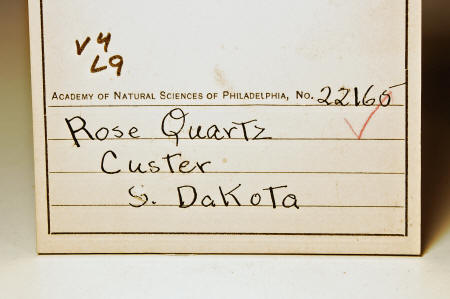 V4
L9
ACADEMY OF NATURAL SCIENCES OF PHILADELPHIA, NO. 22165
Rose Quartz
Custer
S. Dakota